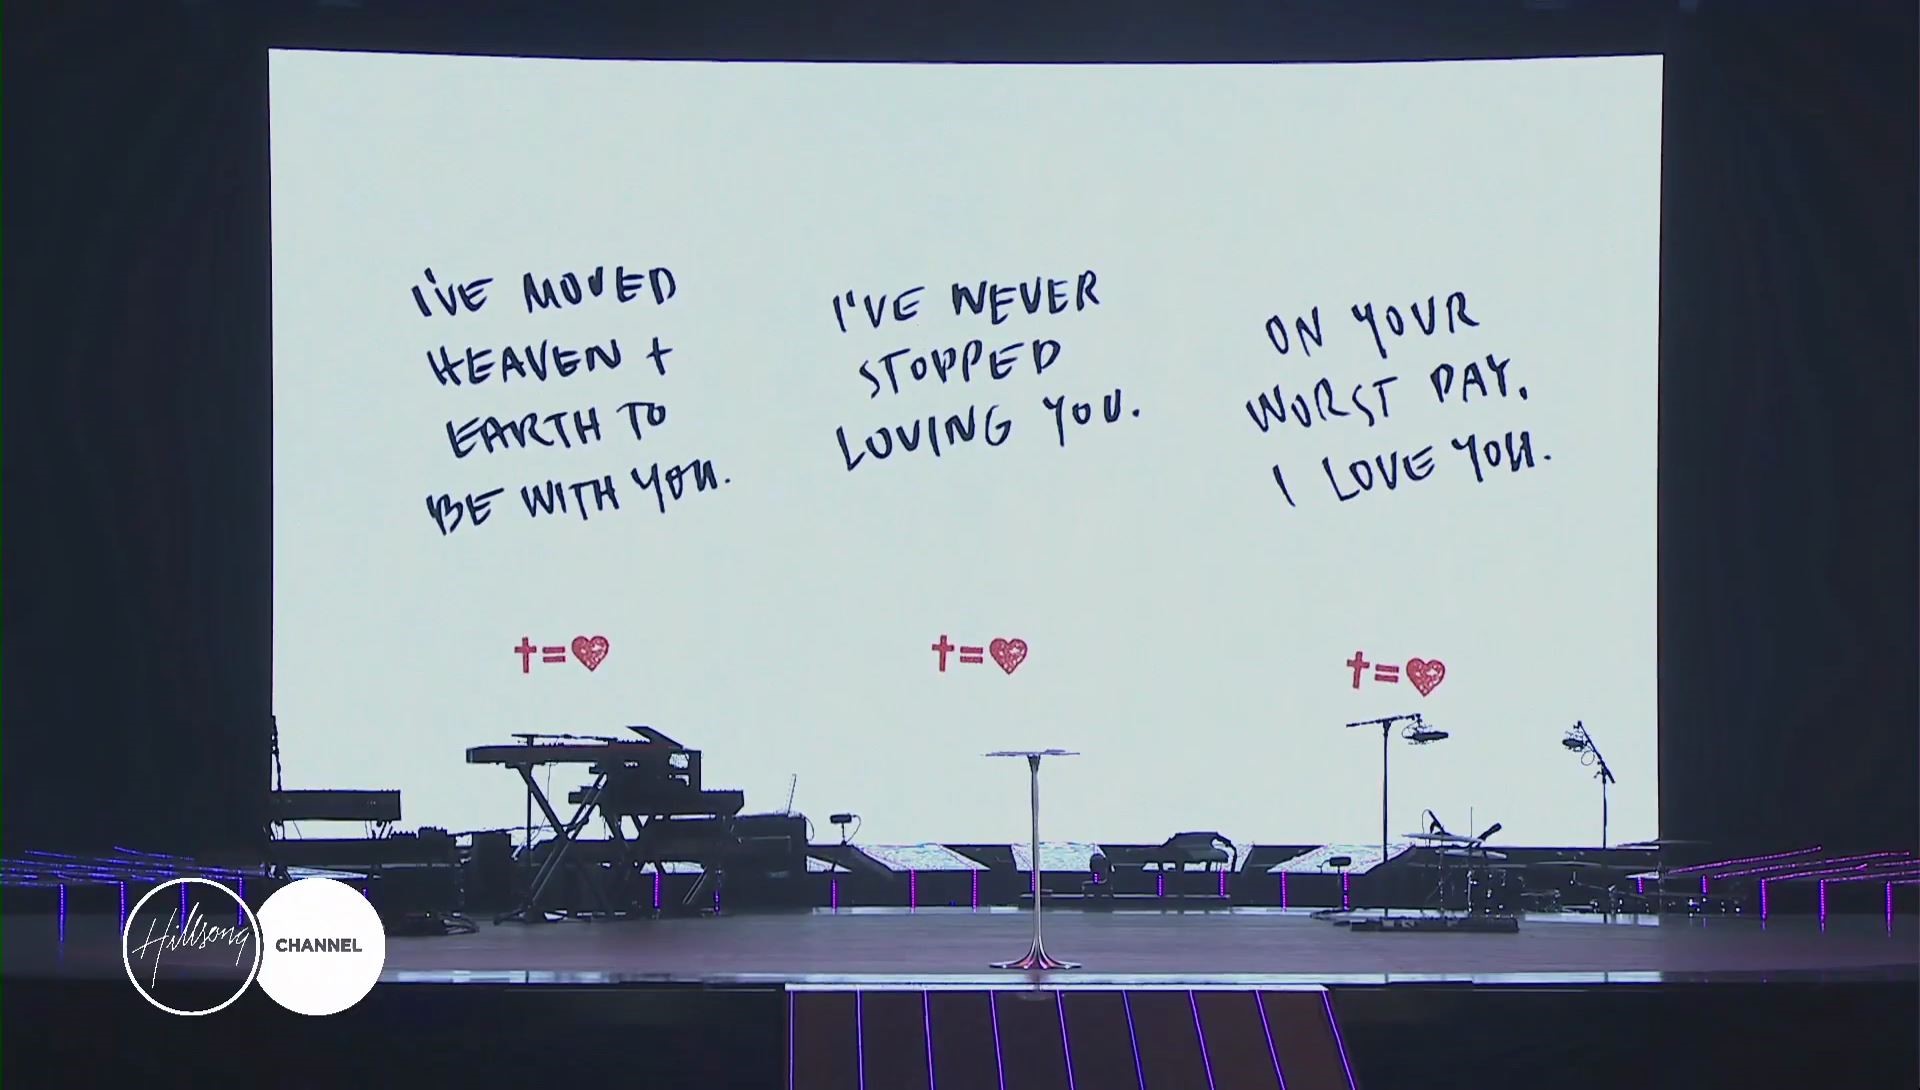 I'VE MOVED
HEAVEN +
EARTH TO
BE WITH YOU.
I'VE NEVER
STOPPED
LOVING YOU.
ON YOUR
WORST DAY,
I LOVE YOU.
†=♥
†=♥
†=♥
Hillsong
CHANNEL